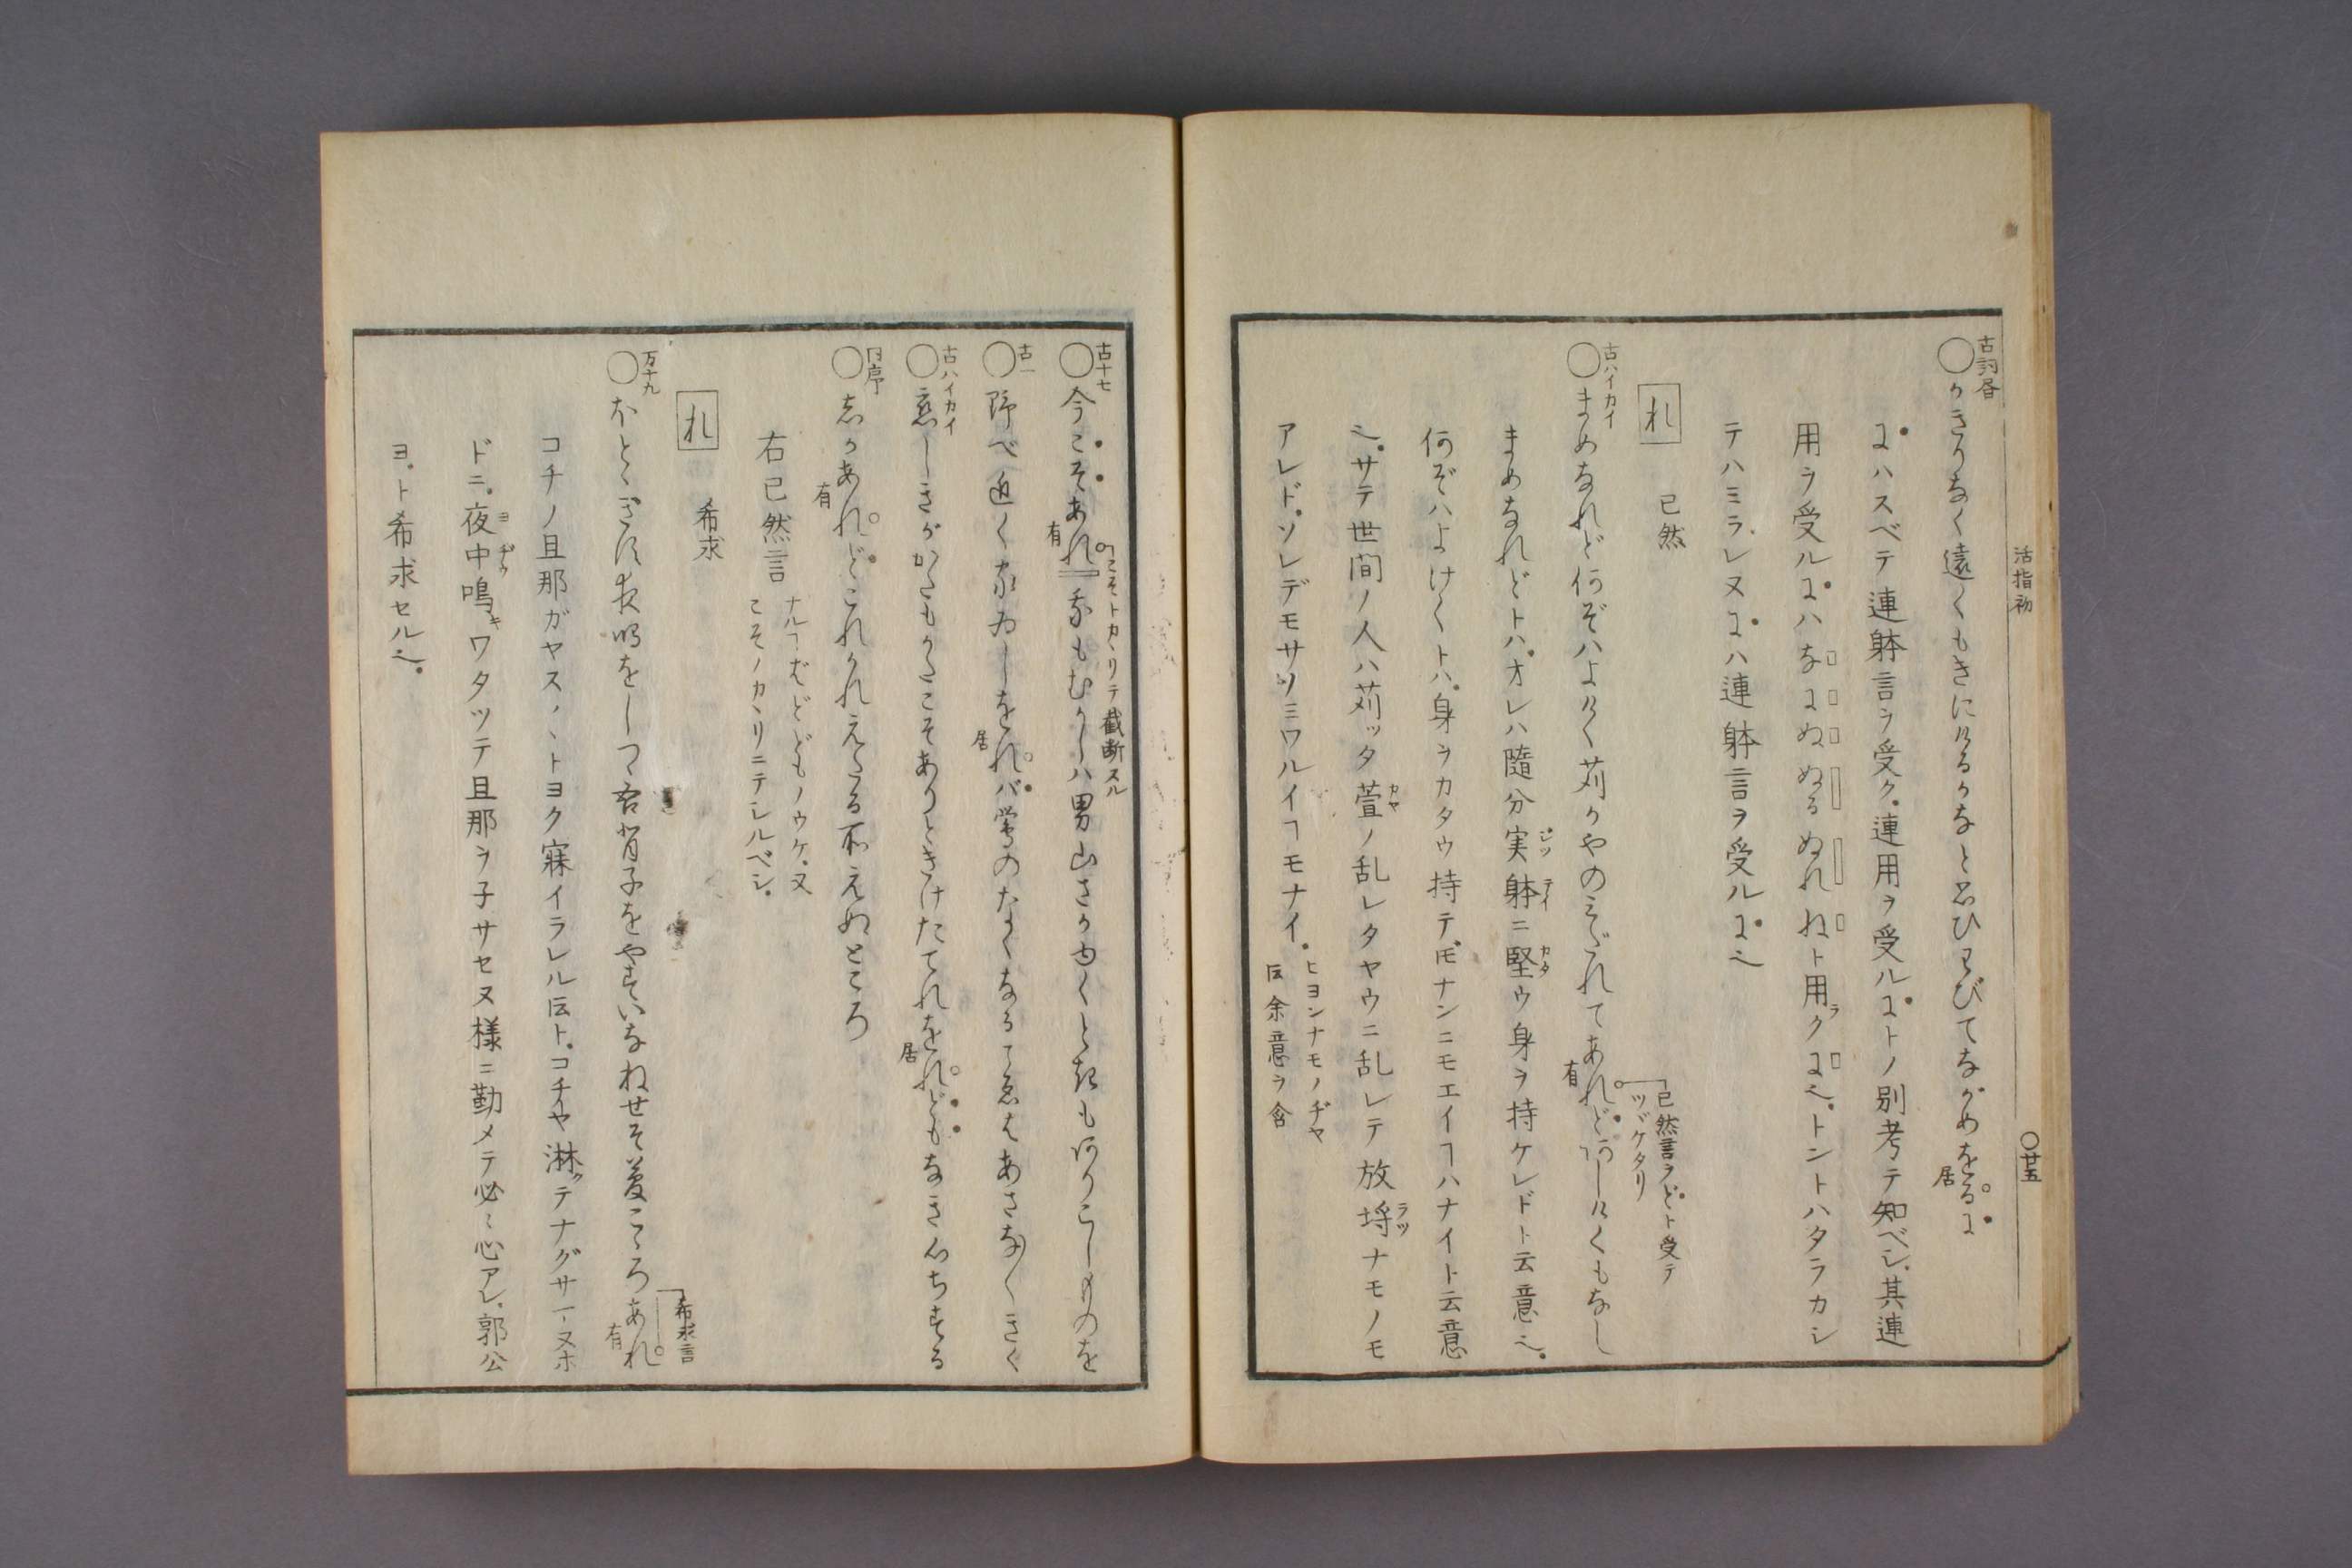 活指初
○廿五
古詞昏
○かきりなく遠くもきにけるかなと思ひわびてながめをるに
居
にハスベテ連躰言ヲ受ク。連用ヲ受ルにトノ別考テ知ベシ。其連
用ヲ受ルにハなにぬぬるぬれねト用ラクに也。トントハタラカシ
テハミラレヌにハ連躰言ヲ受ルに也
れ 已然
古ハイカイ
○まめなれど何ぞハよけく苅かやのみだれてあれどあしけくもなし
有
已然言ヲどト受テ
ツヾケタリ
まめなれどトハ。オレハ隨分実躰ニ堅ウ身ヲ持ケレドト云意也。
何ぞハよけくトハ。身ヲカタウ持テモナンニモエイヿハナイト云意
也。サテ世間ノ人ハ苅ッタ萱ノ乱レタヤウニ乱レテ放埒ナモノモ
アレド。ソレデモサノミワルイヿモナイ。ヒヨンナモノヂヤ
ト云余意ヲ含
古十七
○今こそあれ我もむかしハ男山さかゆくときもありこしものを
有
こそトカヽリテ截断スル
古一
○野べ近く家ゐしをれバ鶯のなくなるこゑはあさな〳〵きく
居
古ハイカイ
○恋しきがかたもかたこそありときけたてれをれどもなき心ちする
居
同序
○しかあれどこれかれえたる所えぬところ
有
右已然言 ナルヿばどどもノウケ。又
こそノカヽリニテシルベシ。
れ 希求
万十九
○ほとゝぎす夜鳴をしつゝ吾背子をやすいなねせそ夢こゝろあれ
有
希求言
コチノ旦那ガヤス〳〵トヨク寐イラレルト云ト。コチヤ淋クテナグサマヌホ
ドニ。夜中鳴キワタツテ旦那ヲ子サセヌ様ニ勤メテ必〻心アレ。郭公
ヨ。ト希求セル也。